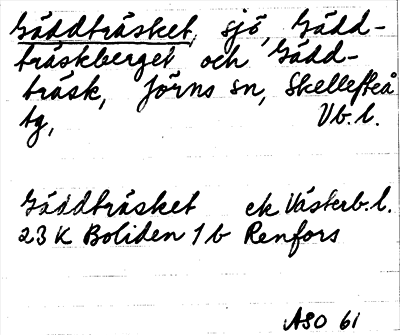 Gäddträsket, sjö, Gädd-
träskberget och Gädd-
träsk, Jörns sn, Skellefteå
tg, Vb.l.
Gäddträsket ek Västerb.l.
23 K Boliden 1 b Renfors
ASO 61